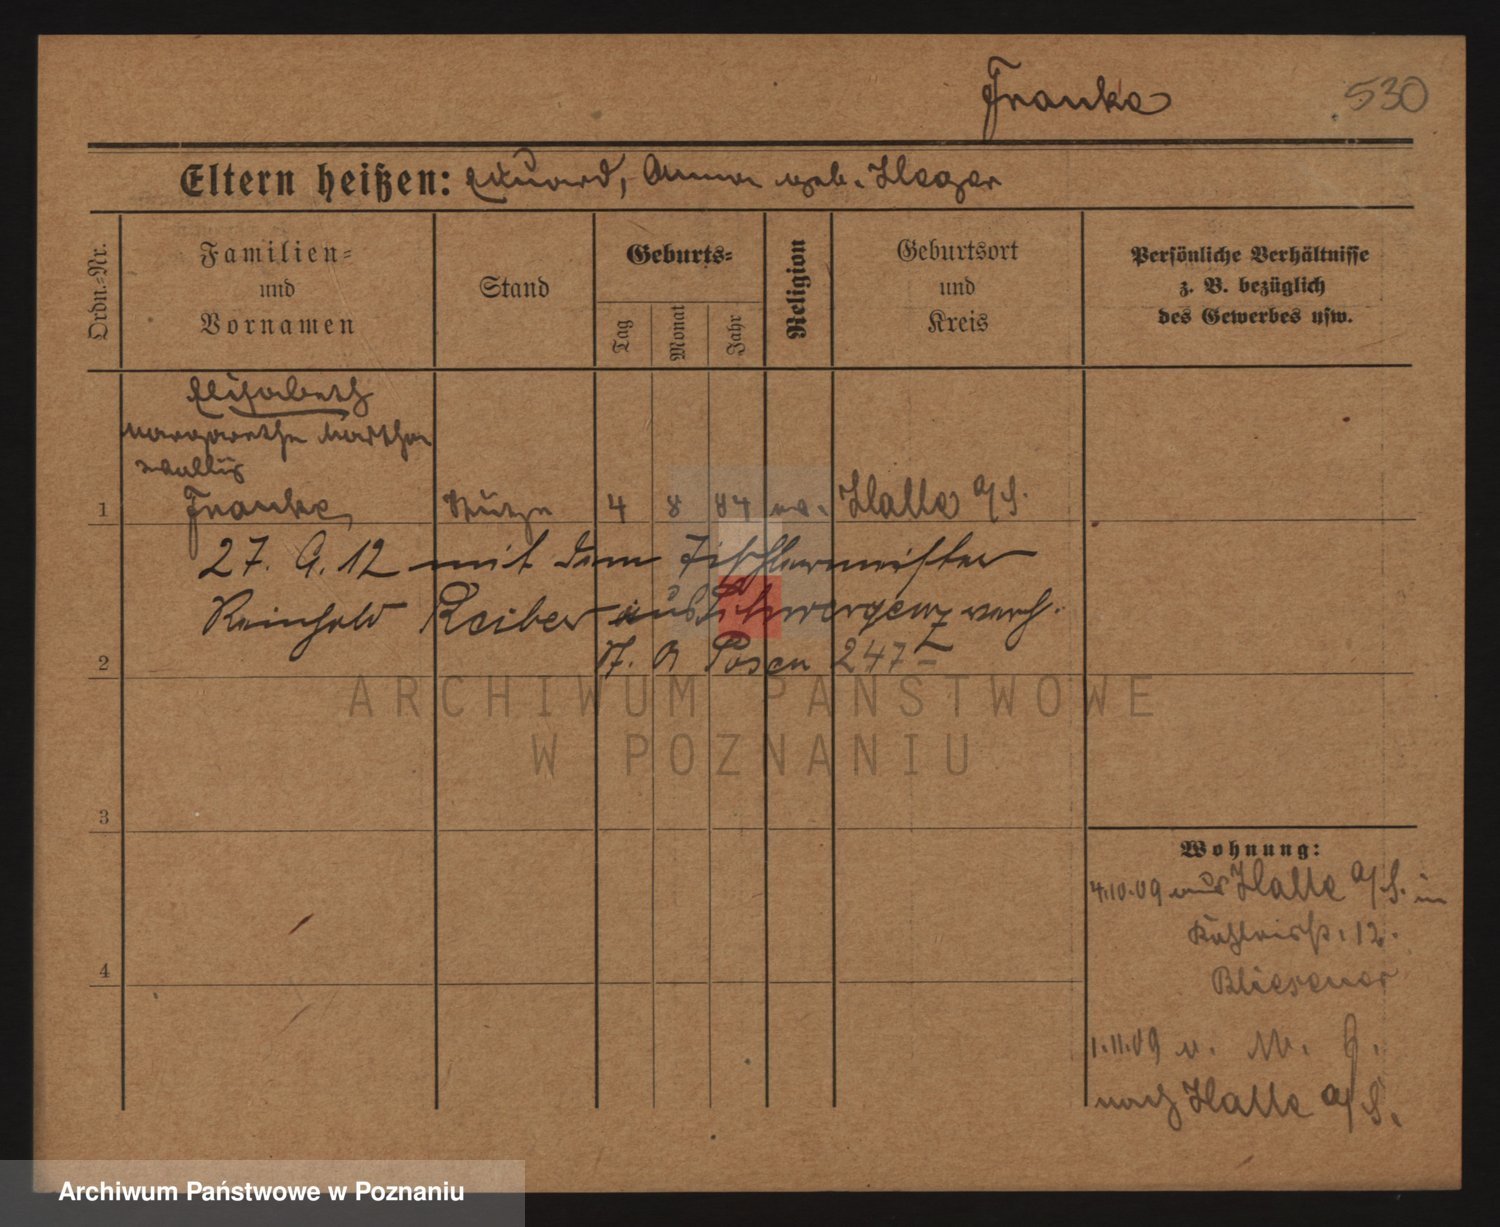 Franke
530
Eltern heißen: Eduard, Anna geb. Hager
Ordn.-Nr.
Familien- und Vornamen
Stand
Geburts-
Tag
Monat
Jahr
Religion
Geburtsort und Kreis
Persönliche Verhältnisse
z. B. bezüglich
des Gewerbes usw.
Elisabeth
Margarethe Martha
1 Franke, Stütze 4 8 84 ev. Halle a/S.
27. 9. 12 mit dem Tischlermeister
Reinhold Reiber aus verh.
2 St. A Posen 247
3
4
Wohnung:
4.10.09 aus Halle a/S. in
12.
Bliesener
1.11.09 v. M. G.
nach Halle a/S.
ARCHIWUM PAŃSTWOWE
W POZNANIU
Archiwum Państwowe w Poznaniu